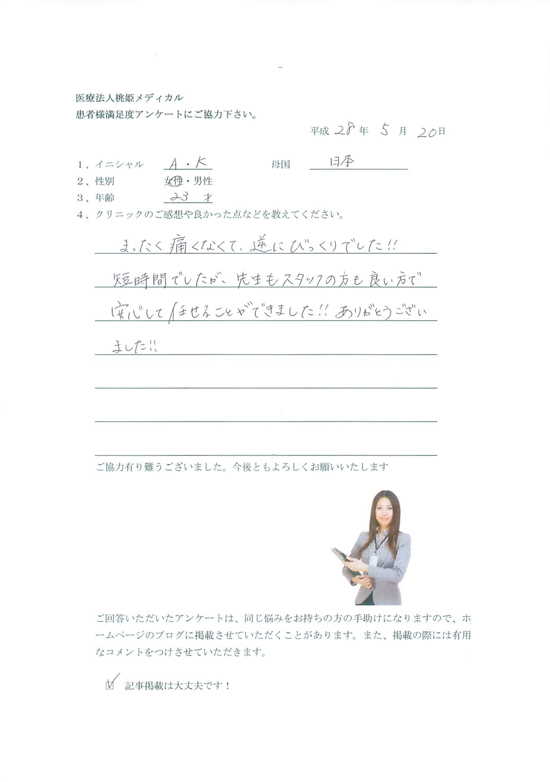 医療法人桃姫メディカル
患者様満足度アンケートにご協力下さい。
平成 28 年 5 月 20 日
1、イニシャル A・K 母国 日本
2、性別 女性・男性
3、年齢 23 才
4、クリニックのご感想や良かった点などを教えてください。
まったく痛くなくて、逆にびっくりでした!!
短時間でしたが、先生もスタッフの方も良い方で
安心して任せることができました!! ありがとうござい
ました!!
ご協力有り難うございました。今後ともよろしくお願いいたします
ご回答いただいたアンケートは、同じ悩みをお持ちの方の手助けになりますので、ホ
ームページのブログに掲載させていただくことがあります。また、掲載の際には有用
なコメントをつけさせていただきます。
☑ 記事掲載は大丈夫です!